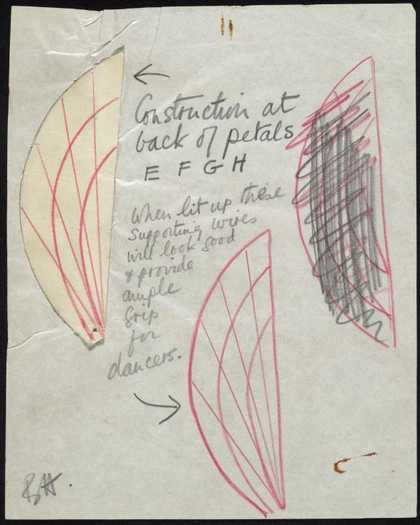 Construction at
back of petals
E F G H
When lit up these
supporting wires
will look good
& provide
ample
grip
for
dancers.